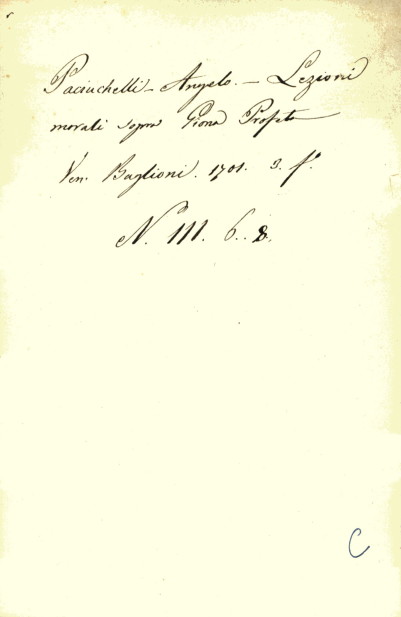 Paciuchelli - Angelo. - Lezioni
morali sopra Giona Profeta
Ven. Baglioni. 1701. 3. fo.
N. III. 6.. 8.
C